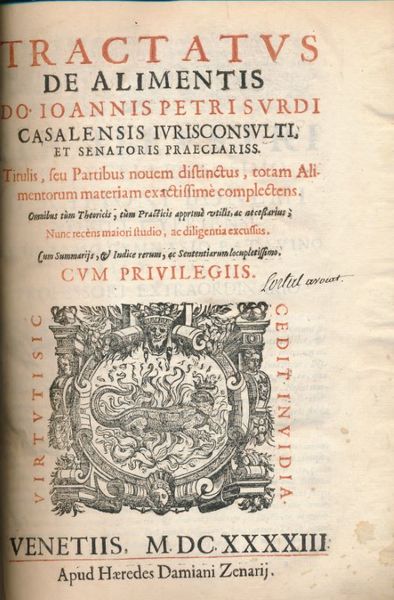 TRACTATVS
DE ALIMENTIS
DO· IOANNIS PETRI SVRDI
CASALENSIS IVRISCONSVLTI,
ET SENATORIS PRAECLARISS.
Titulis, seu Partibus nouem distinctus, totam Ali-
mentorum materiam exactissimè complectens.
Omnibus tùm Theoricis, tùm Practicis apprimè vtilis, ac necessarius;
Nunc recèns maiori studio, ac diligentia excussus.
Cum Summarijs, & Indice rerum, ac Sententiarum locupletissimo.
CVM PRIVILEGIIS.
avocat.
VIRTVTI SIC
CEDIT INVIDIA
VENETIIS, M. DC. XXXXIII
Apud Hæredes Damiani Zenarij.